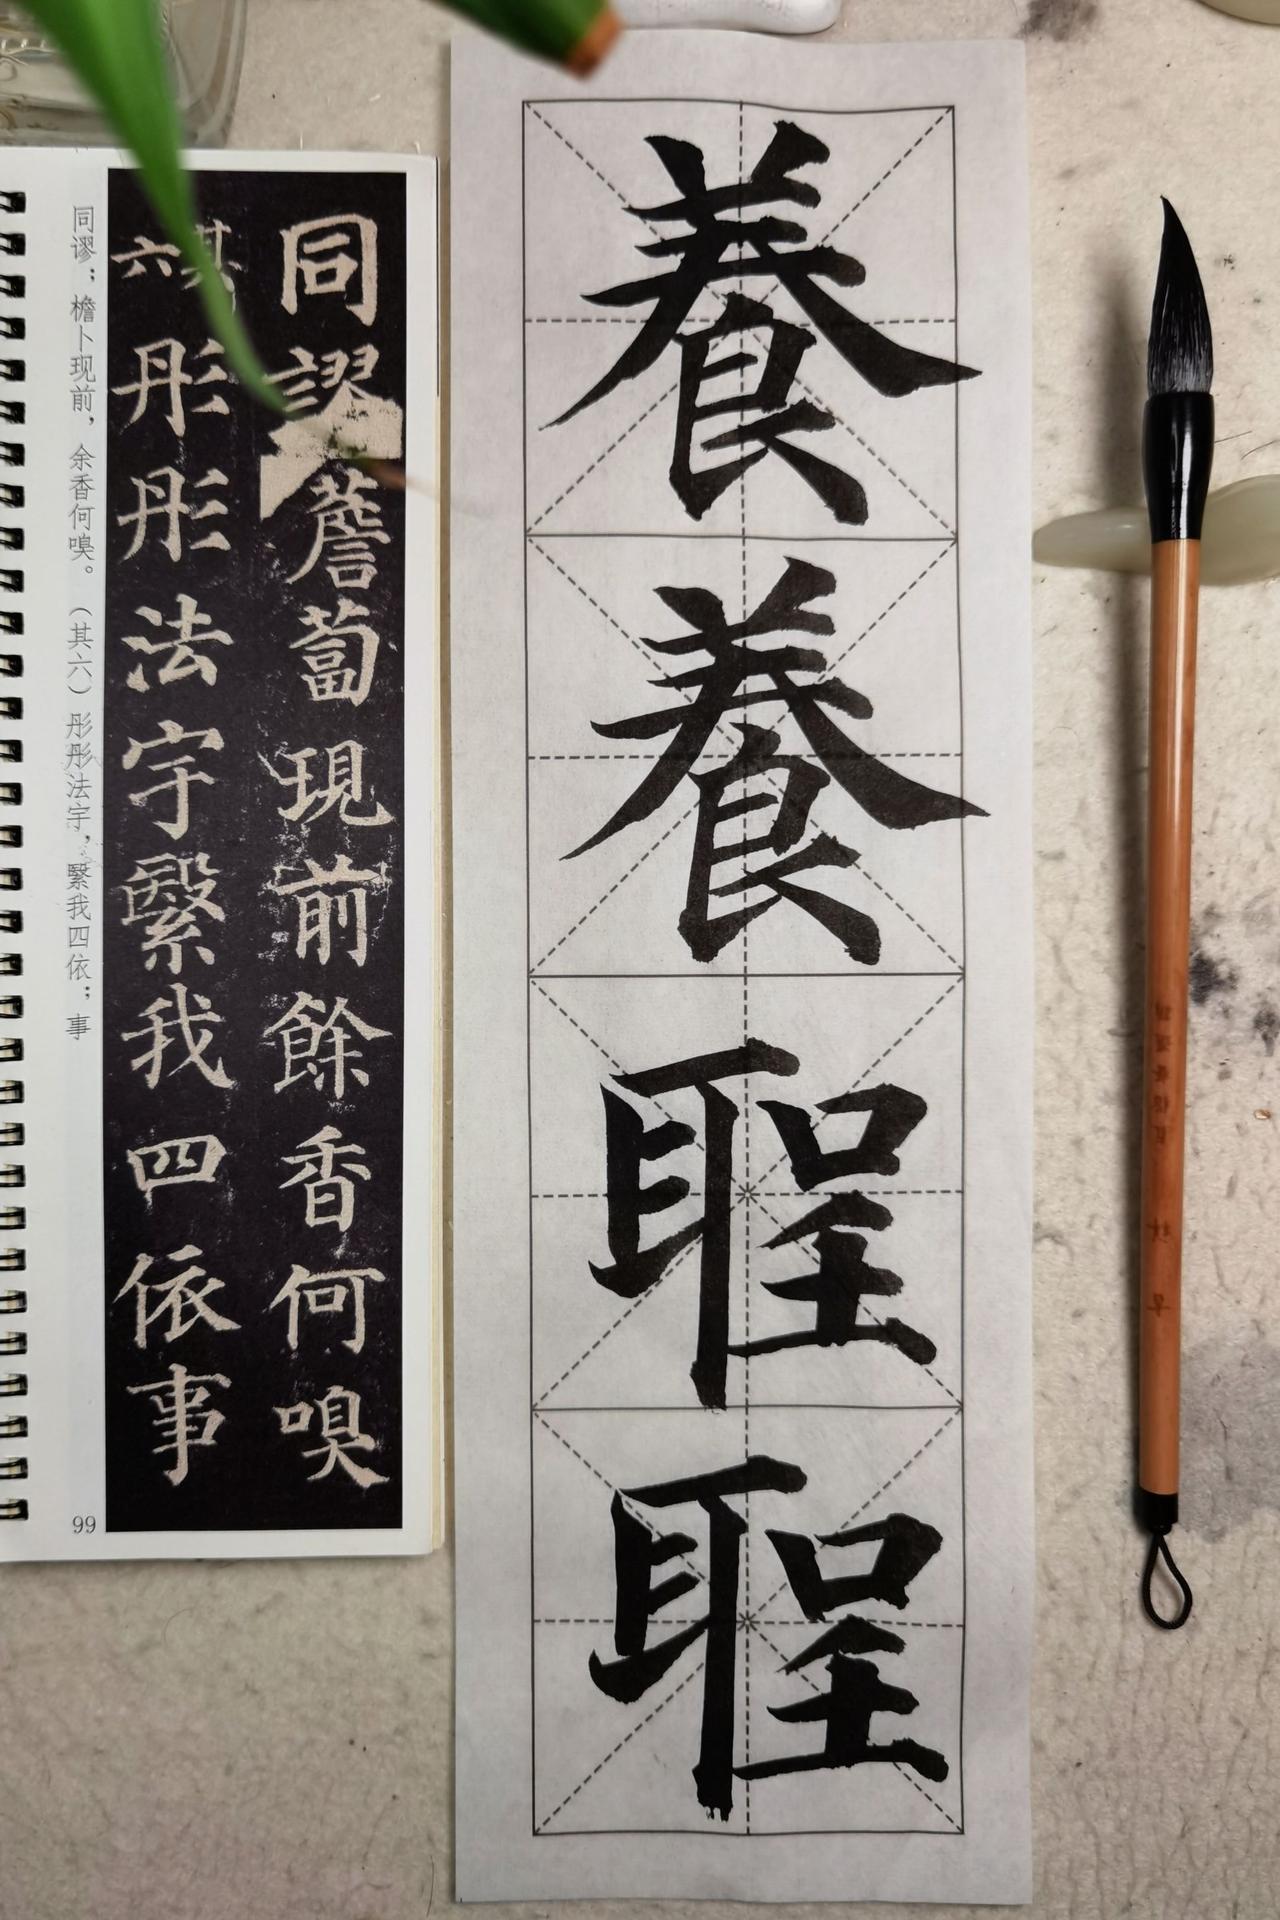 養
養
聖
聖
同謬薝蔔現前餘香何嗅
其六
彤彤法宇繄我四依事
同谬；檐卜现前，余香何嗅。（其六）彤彤法宇，繄我四依；事
99